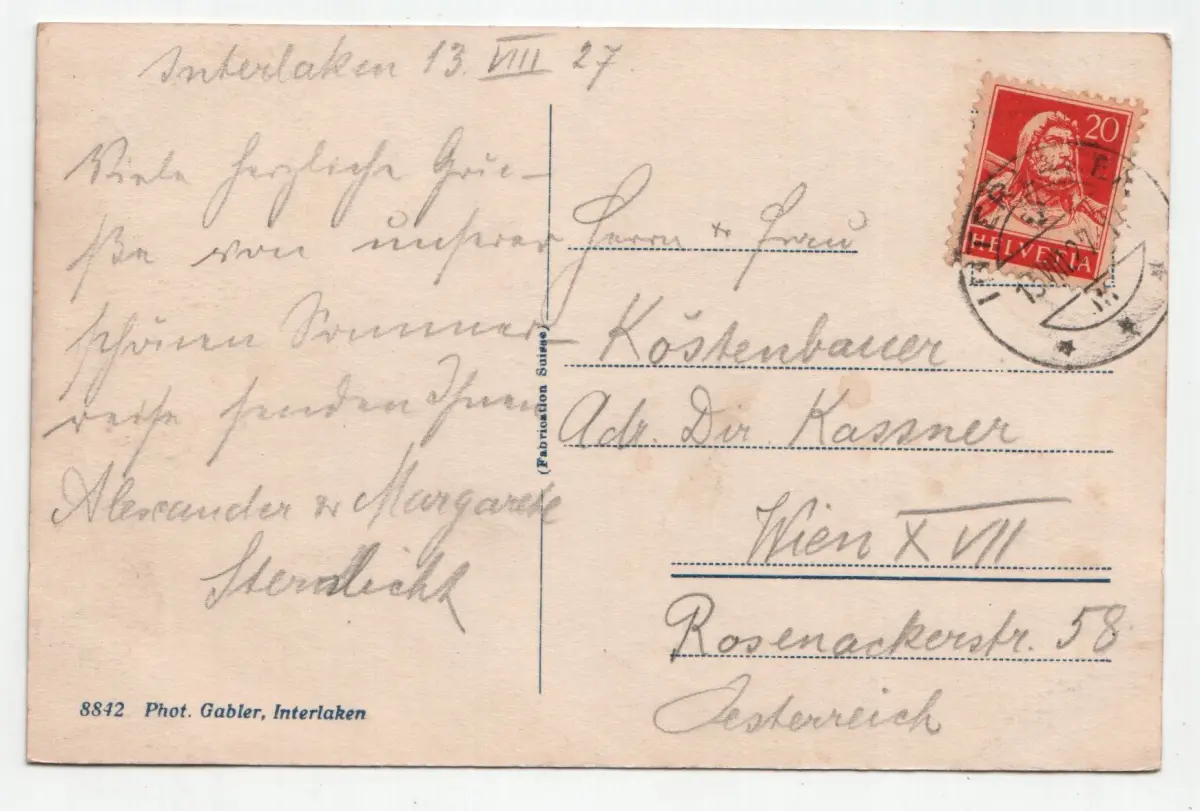 Interlaken 13. VIII 27.
Viele herzliche Grü-
ße von unserer
schönen Sommer-
reise senden Ihnen
Alexander & Margarete
Sternlicht
8842 Phot. Gabler, Interlaken
(Fabrication Suisse)
20
HELVETIA
13.VIII.27
Herrn & Frau
Köstenbauer
Adr. Dir. Kassner
Wien XVII
Rosenackerstr. 58
Oesterreich